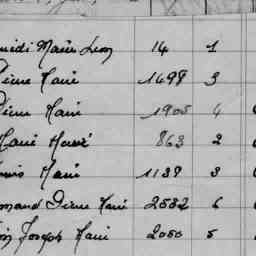 Marie Léon 14 1
Pierre Marie 1498 3
Pierre Marie 1905 4
Marie Hervé 863 2
Marie 1139 3
Pierre Marie 2532 6
Joseph Marie 2050 5